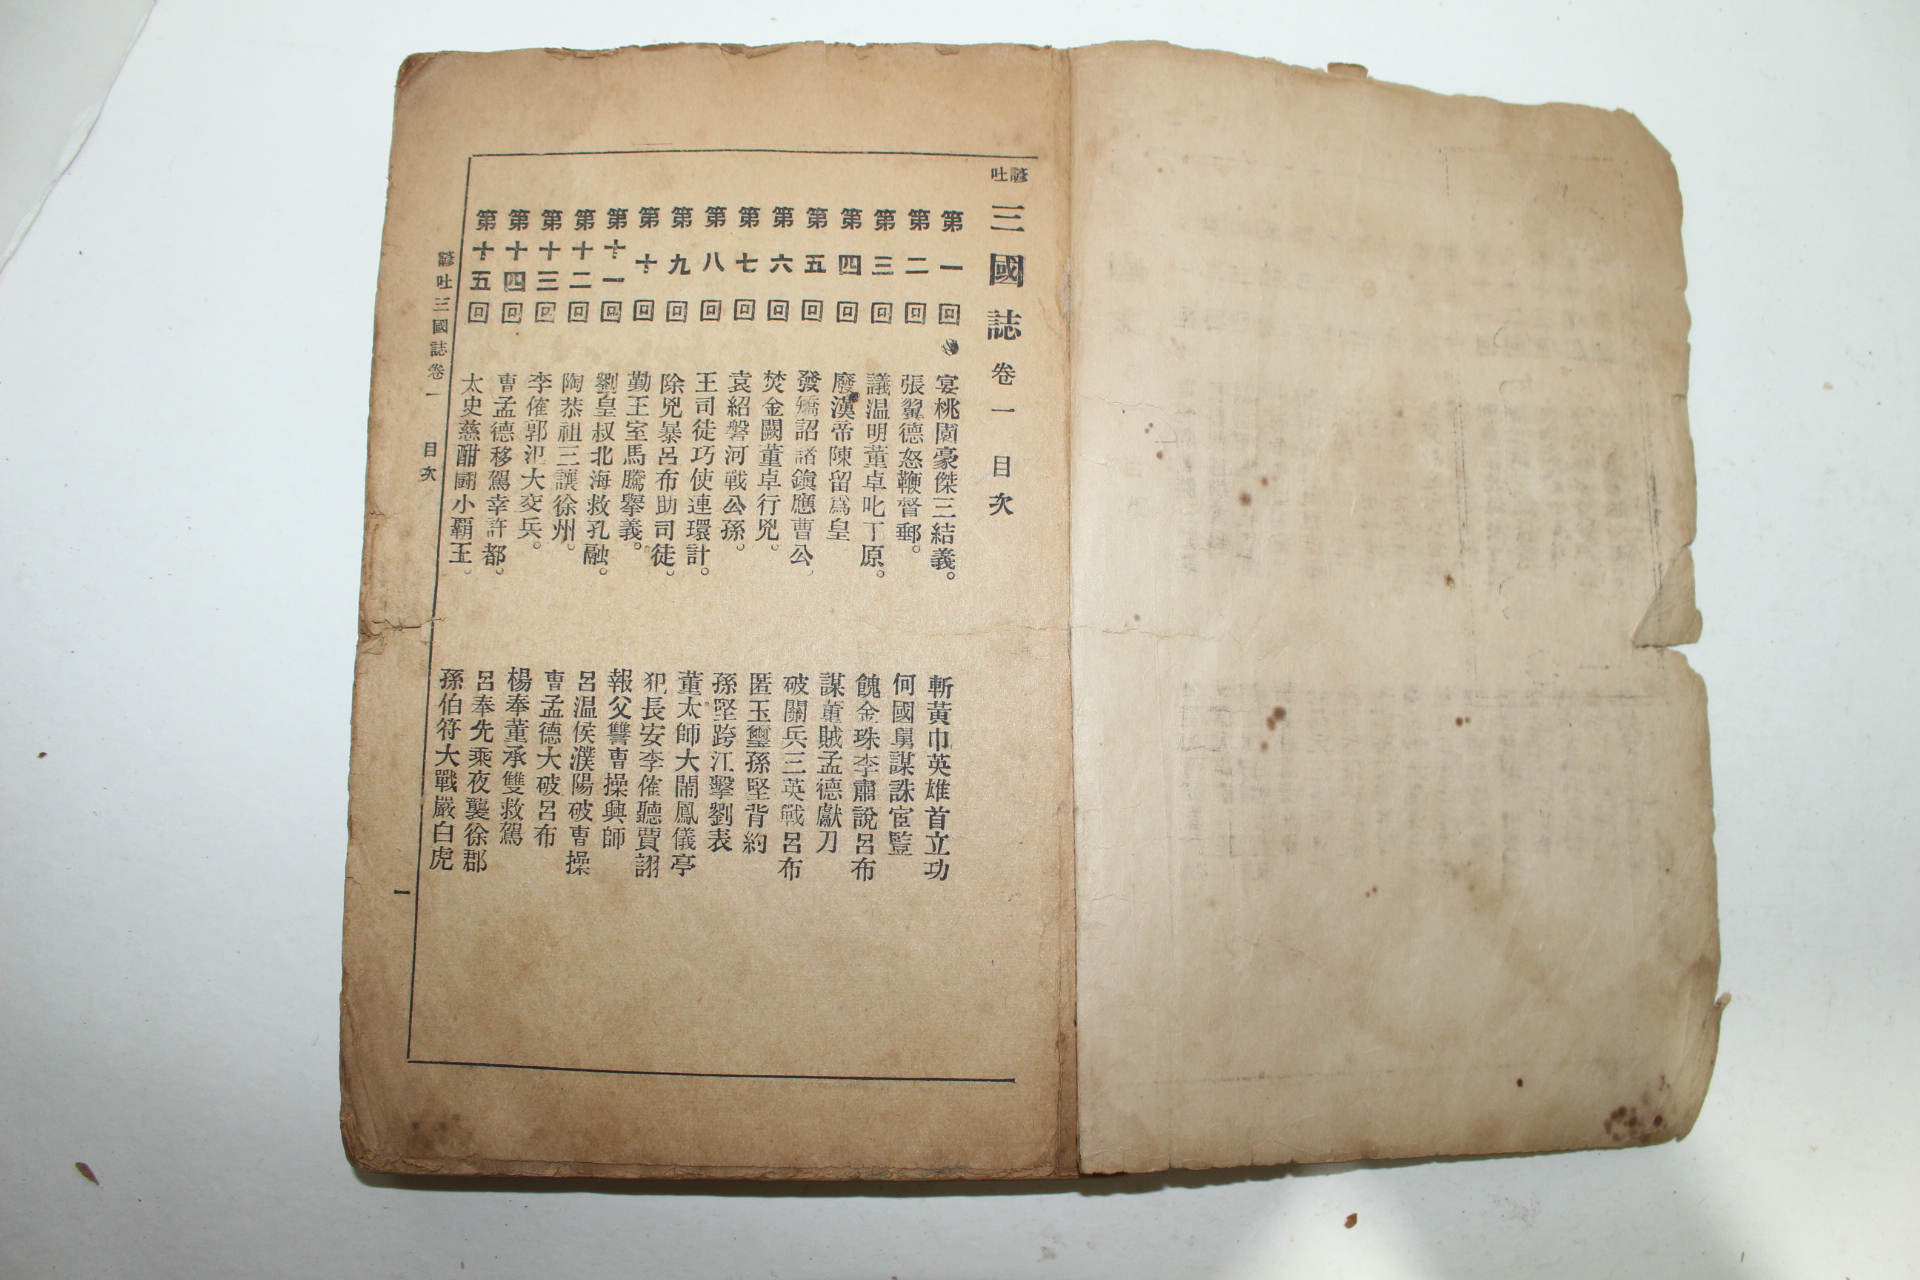 諺吐 三國誌 卷一 目次
第一回 宴桃園豪傑三結義。 斬黃巾英雄首立功
第二回 張翼德怒鞭督郵。 何國舅謀誅宦豎
第三回 議温明董卓叱丁原。 餽金珠李肅說呂布
第四回 廢漢帝陳留爲皇 謀董賊孟德獻刀
第五回 發矯詔諸鎭應曹公。 破關兵三英戰呂布
第六回 焚金闕董卓行兇。 匿玉璽孫堅背約
第七回 袁紹磐河戰公孫。 孫堅跨江擊劉表
第八回 王司徒巧使連環計。 董太師大鬧鳳儀亭
第九回 除兇暴呂布助司徒。 犯長安李傕聽賈詡
第十回 勤王室馬騰擧義。 報父讐曹操興師
第十一回 劉皇叔北海救孔融。 呂温侯濮陽破曹操
第十二回 陶恭祖三讓徐州。 曹孟德大破呂布
第十三回 李傕郭汜大交兵。 楊奉董承雙救駕
第十四回 曹孟德移駕幸許都。 呂奉先乘夜襲徐郡
第十五回 太史慈酣鬪小覇王。 孫伯符大戰嚴白虎
諺吐三國誌卷一 目次 一